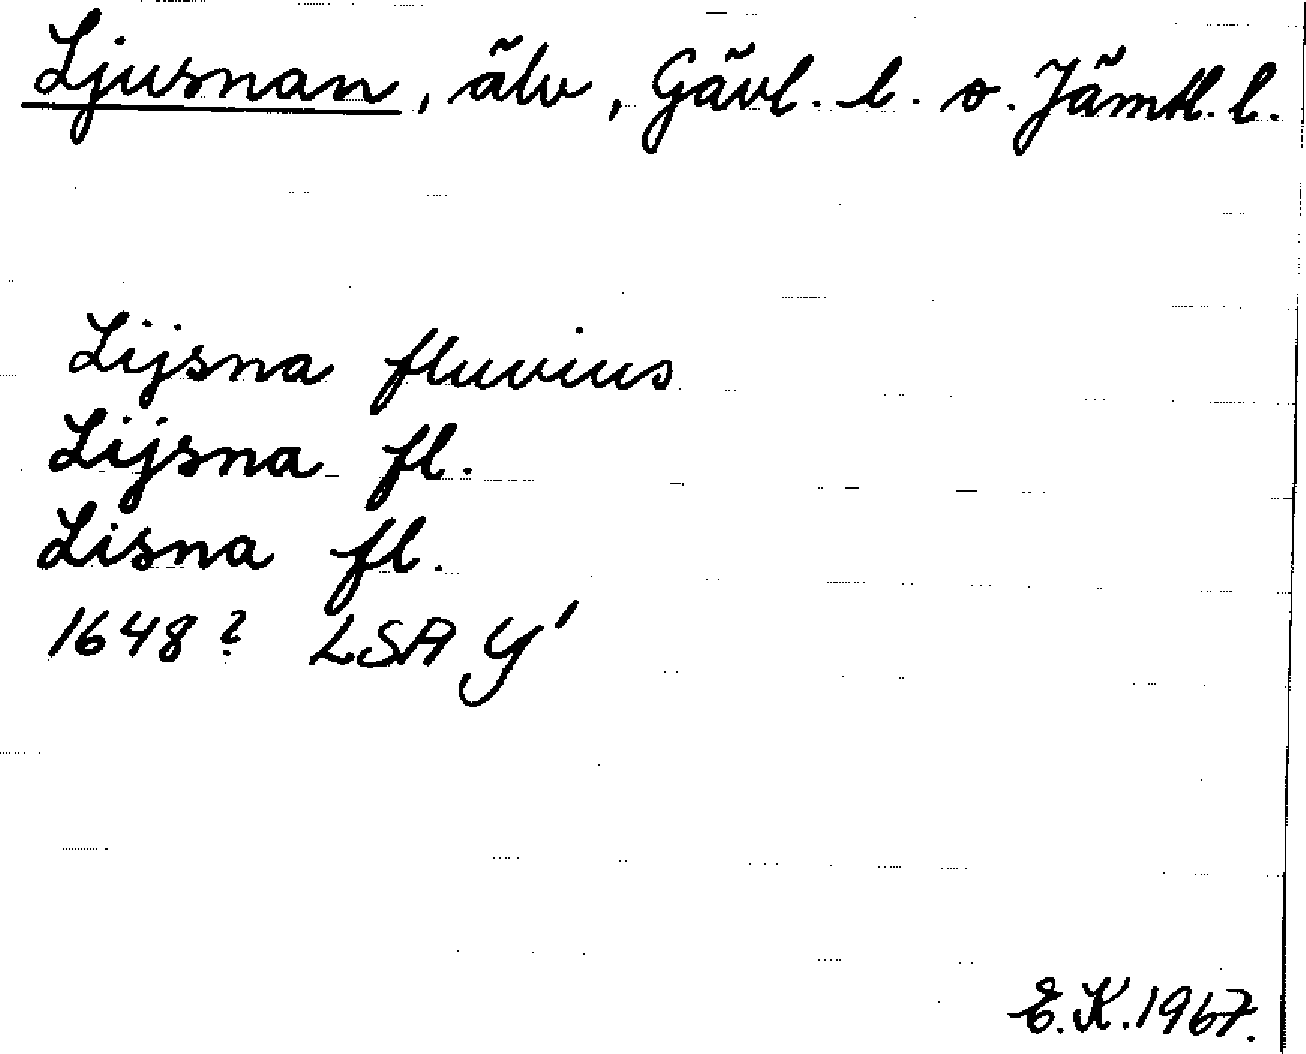 Ljusnan, älv, Gävl. l. o. Jämtl. l.
Lijsna fluvius
Lijsna fl.
Lisna fl.
1648? LSA Y'
E.K. 1967.